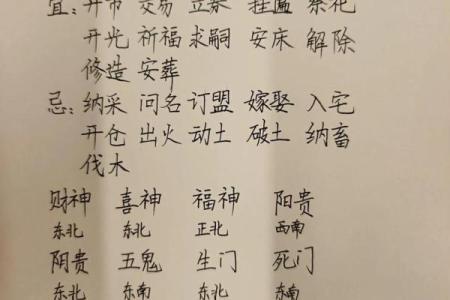 宜：开市 交易 立券 挂匾 祭祀
开光 祈福 求嗣 安床 解除
修造 安葬
忌：纳采 问名 订盟 嫁娶 入宅
开仓 出火 动土 破土 纳畜
伐木
财神 喜神 福神 阳贵
东北 东北 正北 西南
阴贵 五鬼 生门 死门
东北 东南 东北 东南